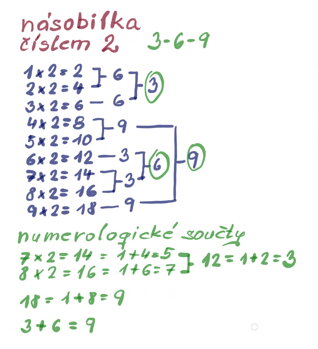 násobilka
číslem 2 3-6-9
1 x 2 = 2
2 x 2 = 4 6 3
3 x 2 = 6 — 6
4 x 2 = 8
5 x 2 = 10 9
6 x 2 = 12 — 3 6 9
7 x 2 = 14
8 x 2 = 16 3
9 x 2 = 18 — 9
numerologické součty
7 x 2 = 14 = 1+4=5
8 x 2 = 16 = 1+6=7 12 = 1+2=3
18 = 1+8=9
3+6 = 9